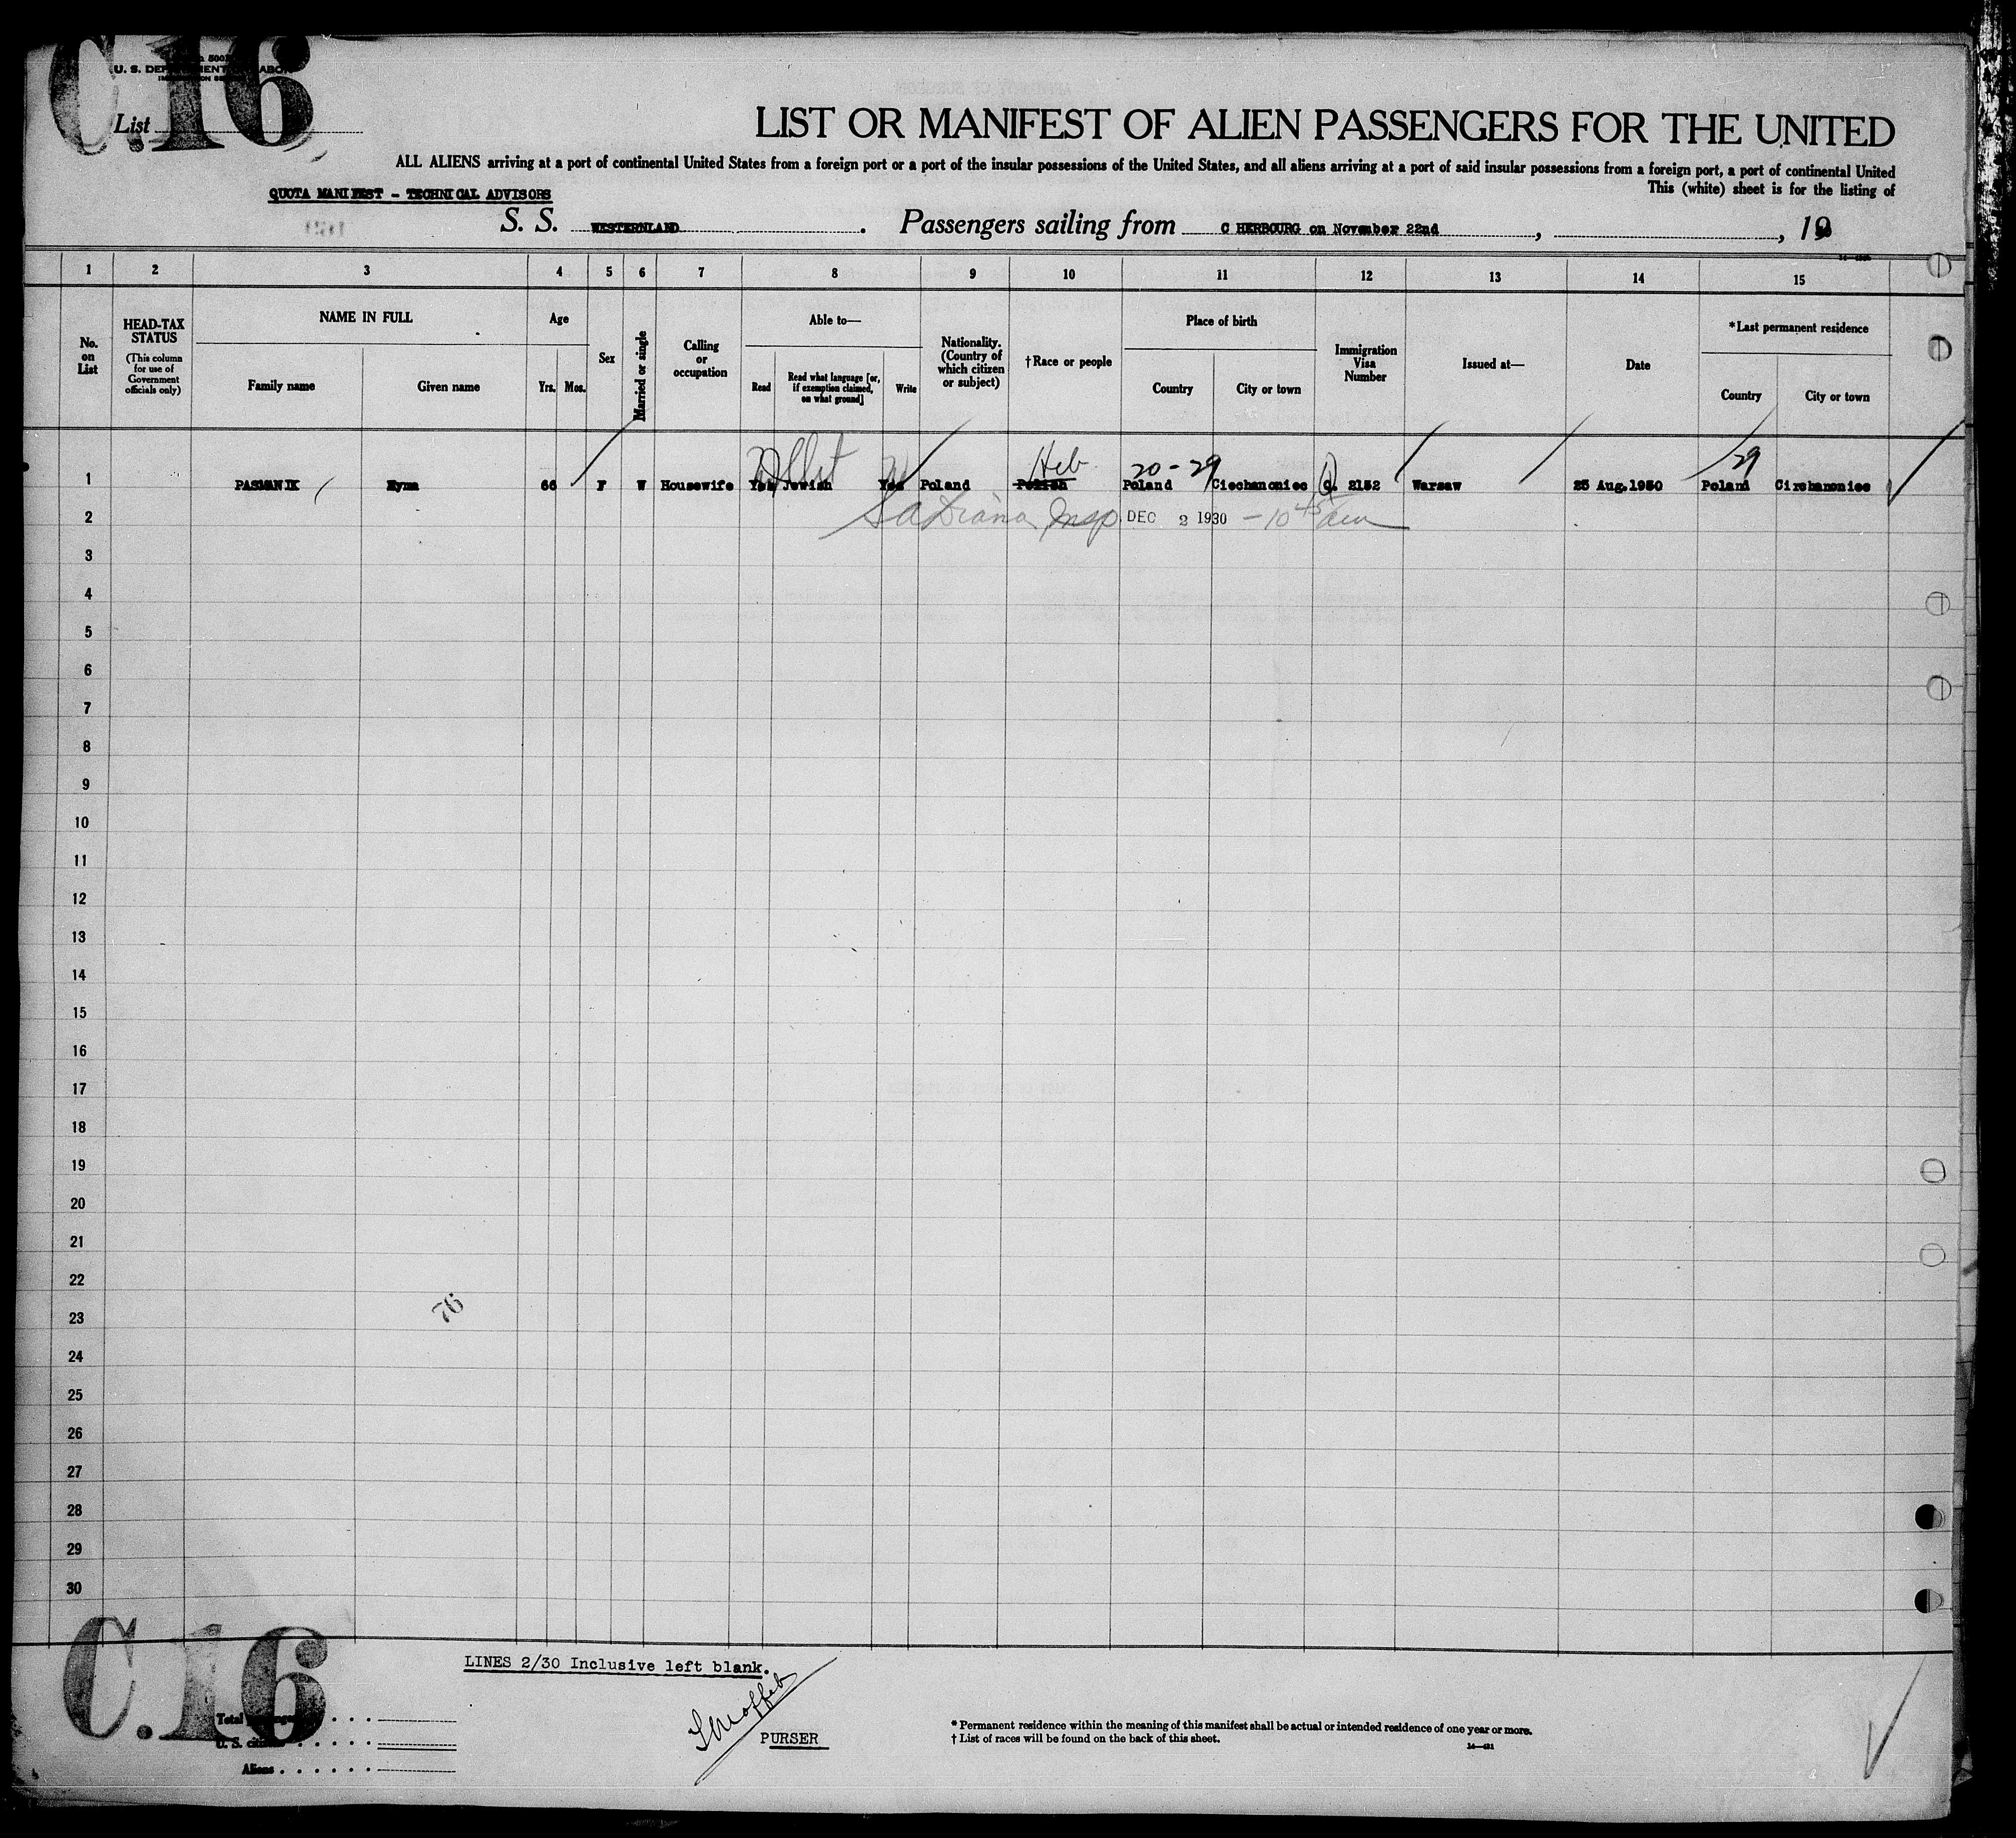 C.16
U. S. DEPARTMENT OF LABOR
List
LIST OR MANIFEST OF ALIEN PASSENGERS FOR THE UNITED
ALL ALIENS arriving at a port of continental United States from a foreign port or a port of the insular possessions of the United States, and all aliens arriving at a port of said insular possessions from a foreign port, a port of continental United
This (white) sheet is for the listing of
QUOTA MANIFEST - TECHNICAL ADVISORS
S. S. WESTERNLAND. Passengers sailing from C HERBOURG on November 22nd, , 19
1 2 3 4 5 6 7 8 9 10 11 12 13 14 15
No. on List
HEAD-TAX STATUS
(This column for use of Government officials only)
NAME IN FULL
Family name Given name
Age
Yrs. Mos.
Sex
Married or single
Calling or occupation
Able to—
Read
Read what language [or, if exemption claimed, on what ground]
Write
Nationality. (Country of which citizen or subject)
†Race or people
Place of birth
Country City or town
Immigration Visa Number
Issued at—
Date
*Last permanent residence
Country City or town
Heb 20-29 29
1 PASMANIK Hyma 66 F W Housewife Yes Jewish Yes Poland Polish Poland Ciechanoniec Q. 2152 Warsaw 25 Aug.1930 Poland Cirehanoniec
2 Insp DEC 2 1930 - 10 45 am
3
4
5
6
7
8
9
10
11
12
13
14
15
16
17
18
19
20
21
22
76
23
24
25
26
27
28
29
30
C.16
LINES 2/30 Inclusive left blank.
PURSER
Total passengers
U. S. citizens
Aliens
* Permanent residence within the meaning of this manifest shall be actual or intended residence of one year or more.
† List of races will be found on the back of this sheet.